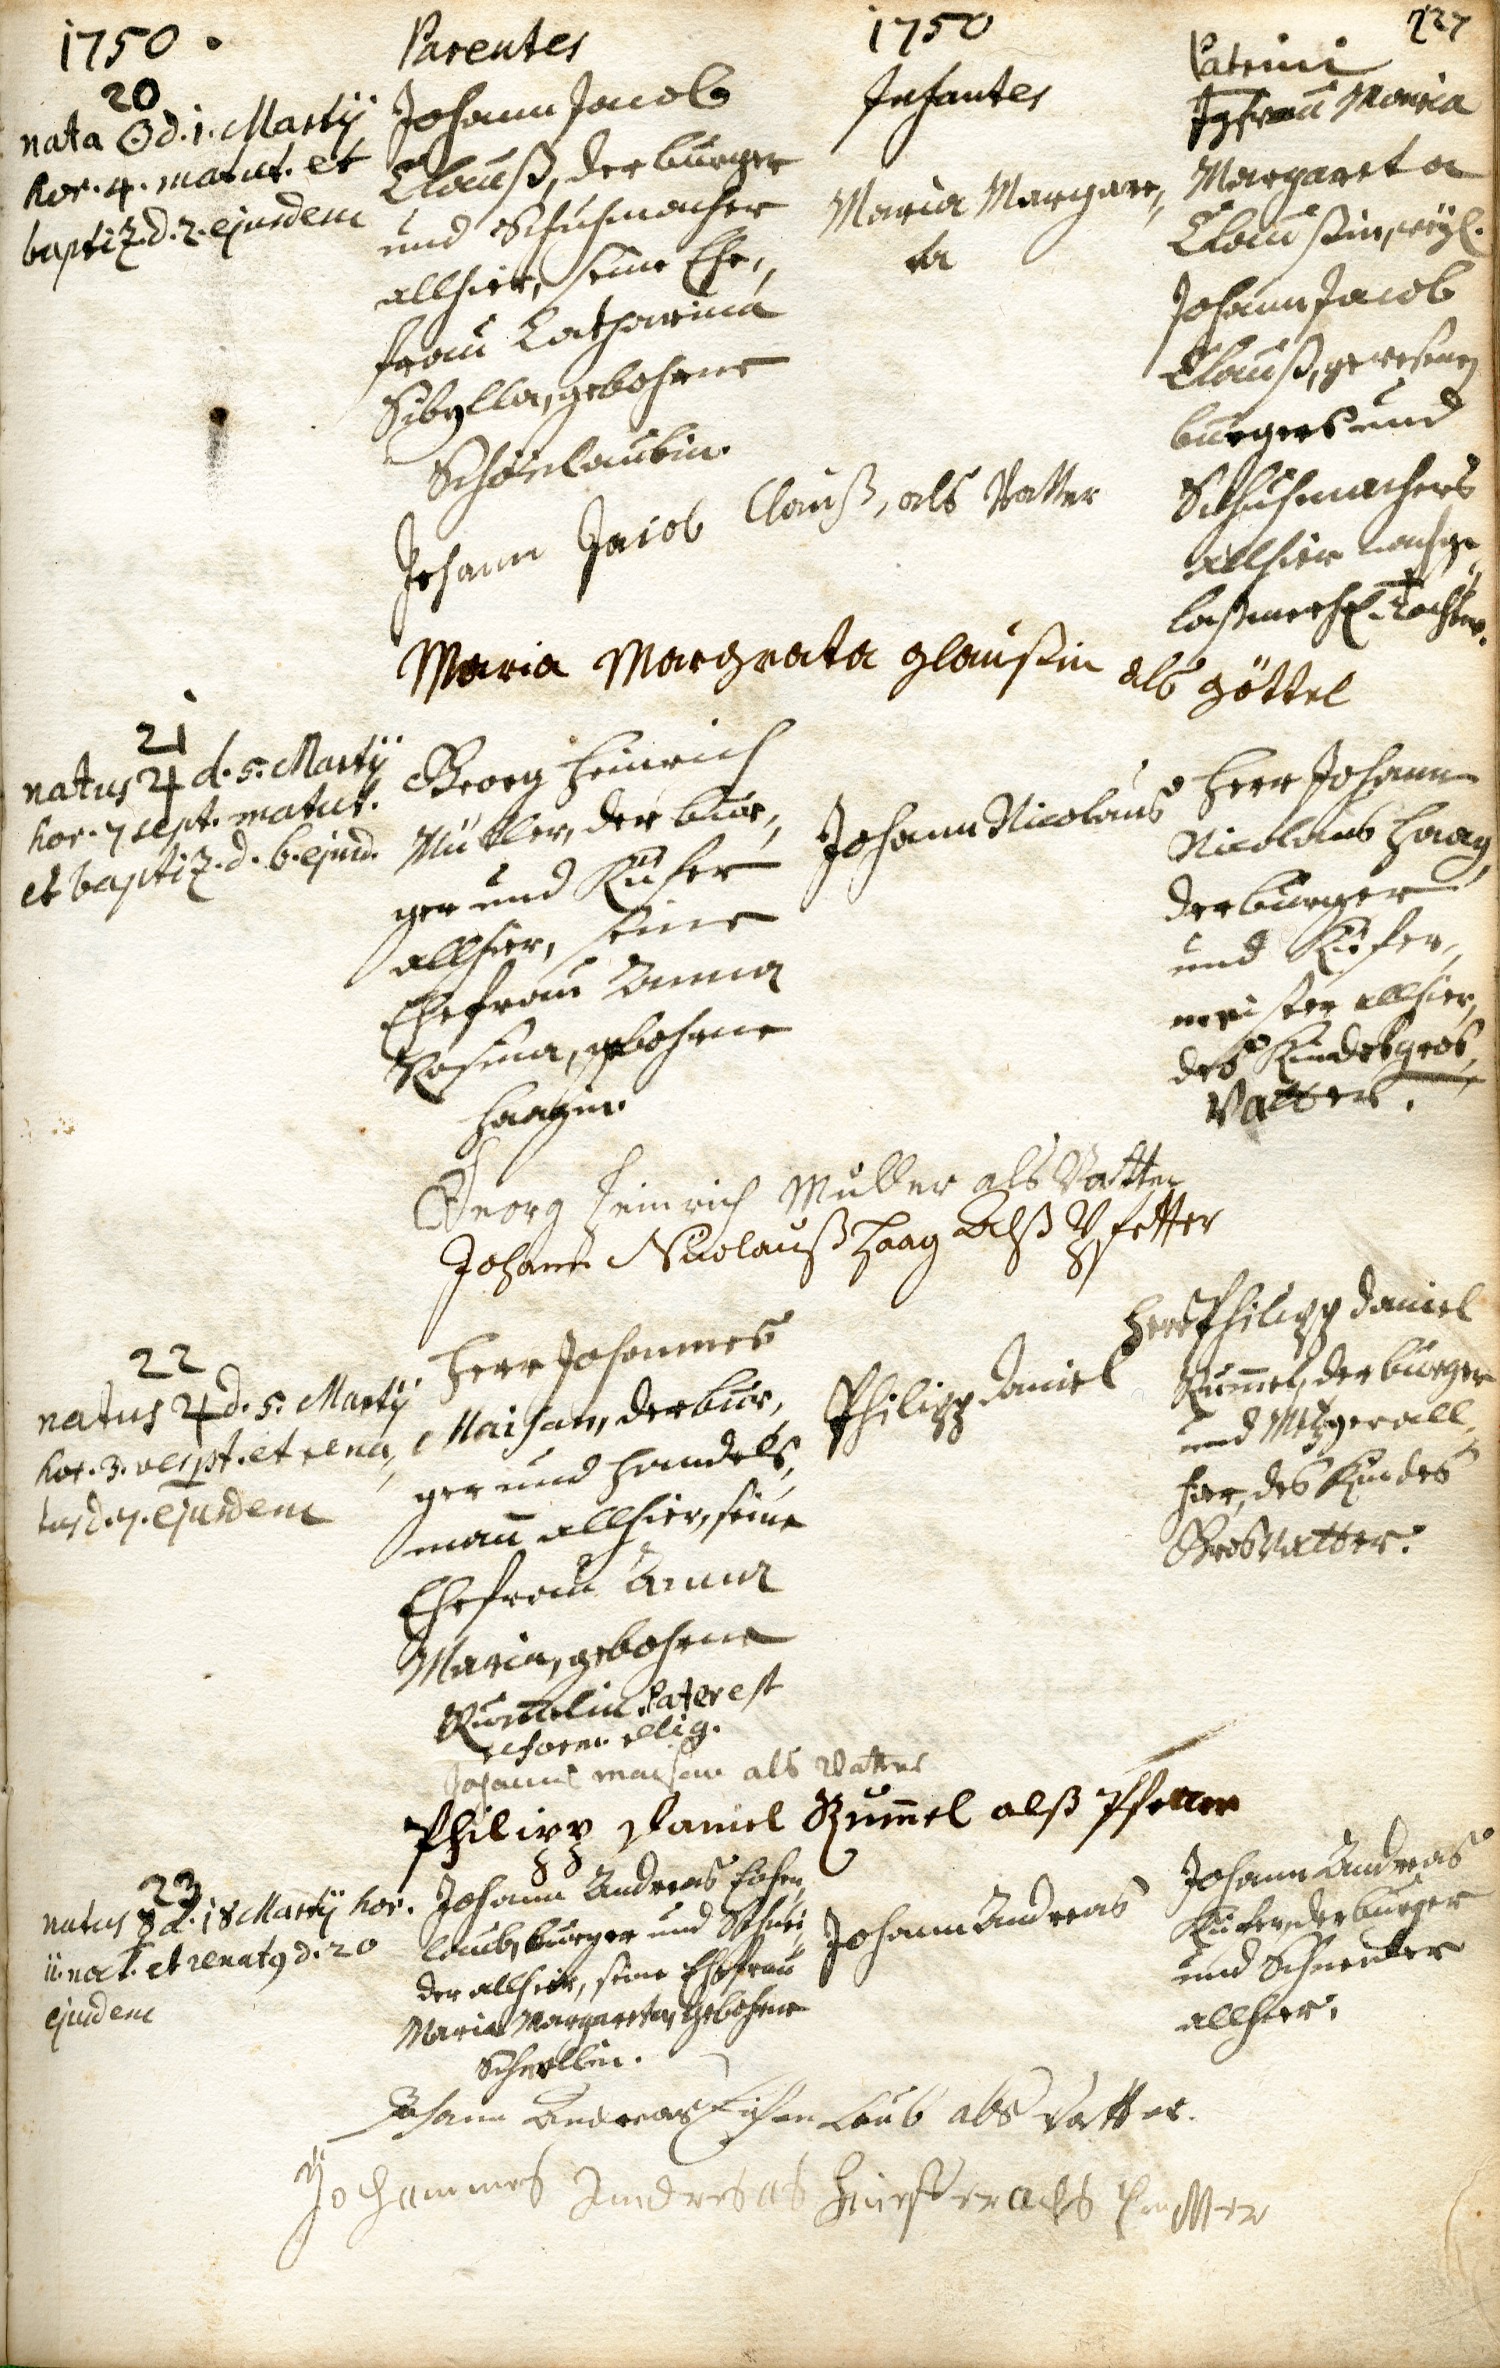 1750.
Parentes
1750
Infantes
Patrini
227
20
nata ☉ d. 1. Martÿ
hor. 4. matut. et
baptiz. d. 2. ejusdem
Johann Jacob
Clauß, der burger
und Schuhmacher
allhier, seine Ehe,
frau Catharina
Sibylla, gebohrne
Schönlaubin.
Maria Margare,
ta
Jgfrau Maria
Margareta
Claussin, weyl.
Johann Jacob
Clauß, gewesenen
burgers und
Schuhmachers
allhier nachge,
laßene ehl. Tochter.
Johann Jacob Clauß, als Vatter
Maria Margrata Glausin als göttel
21
natus ♃ d. 5. Martÿ
hor. 7 sept. matut.
et baptiz. d. 6. ejusd.
Georg Heinrich
Müller, der bur,
ger und Küfer
allhier, seine
Ehefrau Anna
Rosina, gebohrne
Haagin.
Johann Nicolaus
Herr Johann
Nicolaus Haag,
der burger
und Küfer,
meister allhier,
des Kindes gros,
Vatter.
Georg Heinrich Müller als Vatter
Johann Nicolauß Haag Alß Pfetter
22
natus ♃ d. 5. Martÿ
hor. 3. vespt. et rena,
tus d. 7. ejusdem
Herr Johannes
Maisan, der bur,
ger und Handels,
mañ allhier, seine
Ehefrau Anna
Maria, gebohrne
Rum̃elin. Pater est
reform. relig.
Philipp Daniel
Herr Philipp Daniel
Rum̃el, der burger
und Metzger all,
hier, des Kindes
Grosvatter.
Johannes maisan als Vatter
Philipp Daniel Rum̃el alß Pfetter
23
natus ☿ d. 18 Martÿ hor.
11. noct. et renatꝰ d. 20
ejusdem
Johann Andreas Eichen,
laub, burger und Schnei,
der allhier, seine Ehefrau
Maria Margareta, gebohrne
Schellin.
Johann Andreas
Johann Andreas
der burger
und Schneider
allhier.
Johann Andreas Eichenlaub als Vatter.
Johannes Andreas als Pfetter